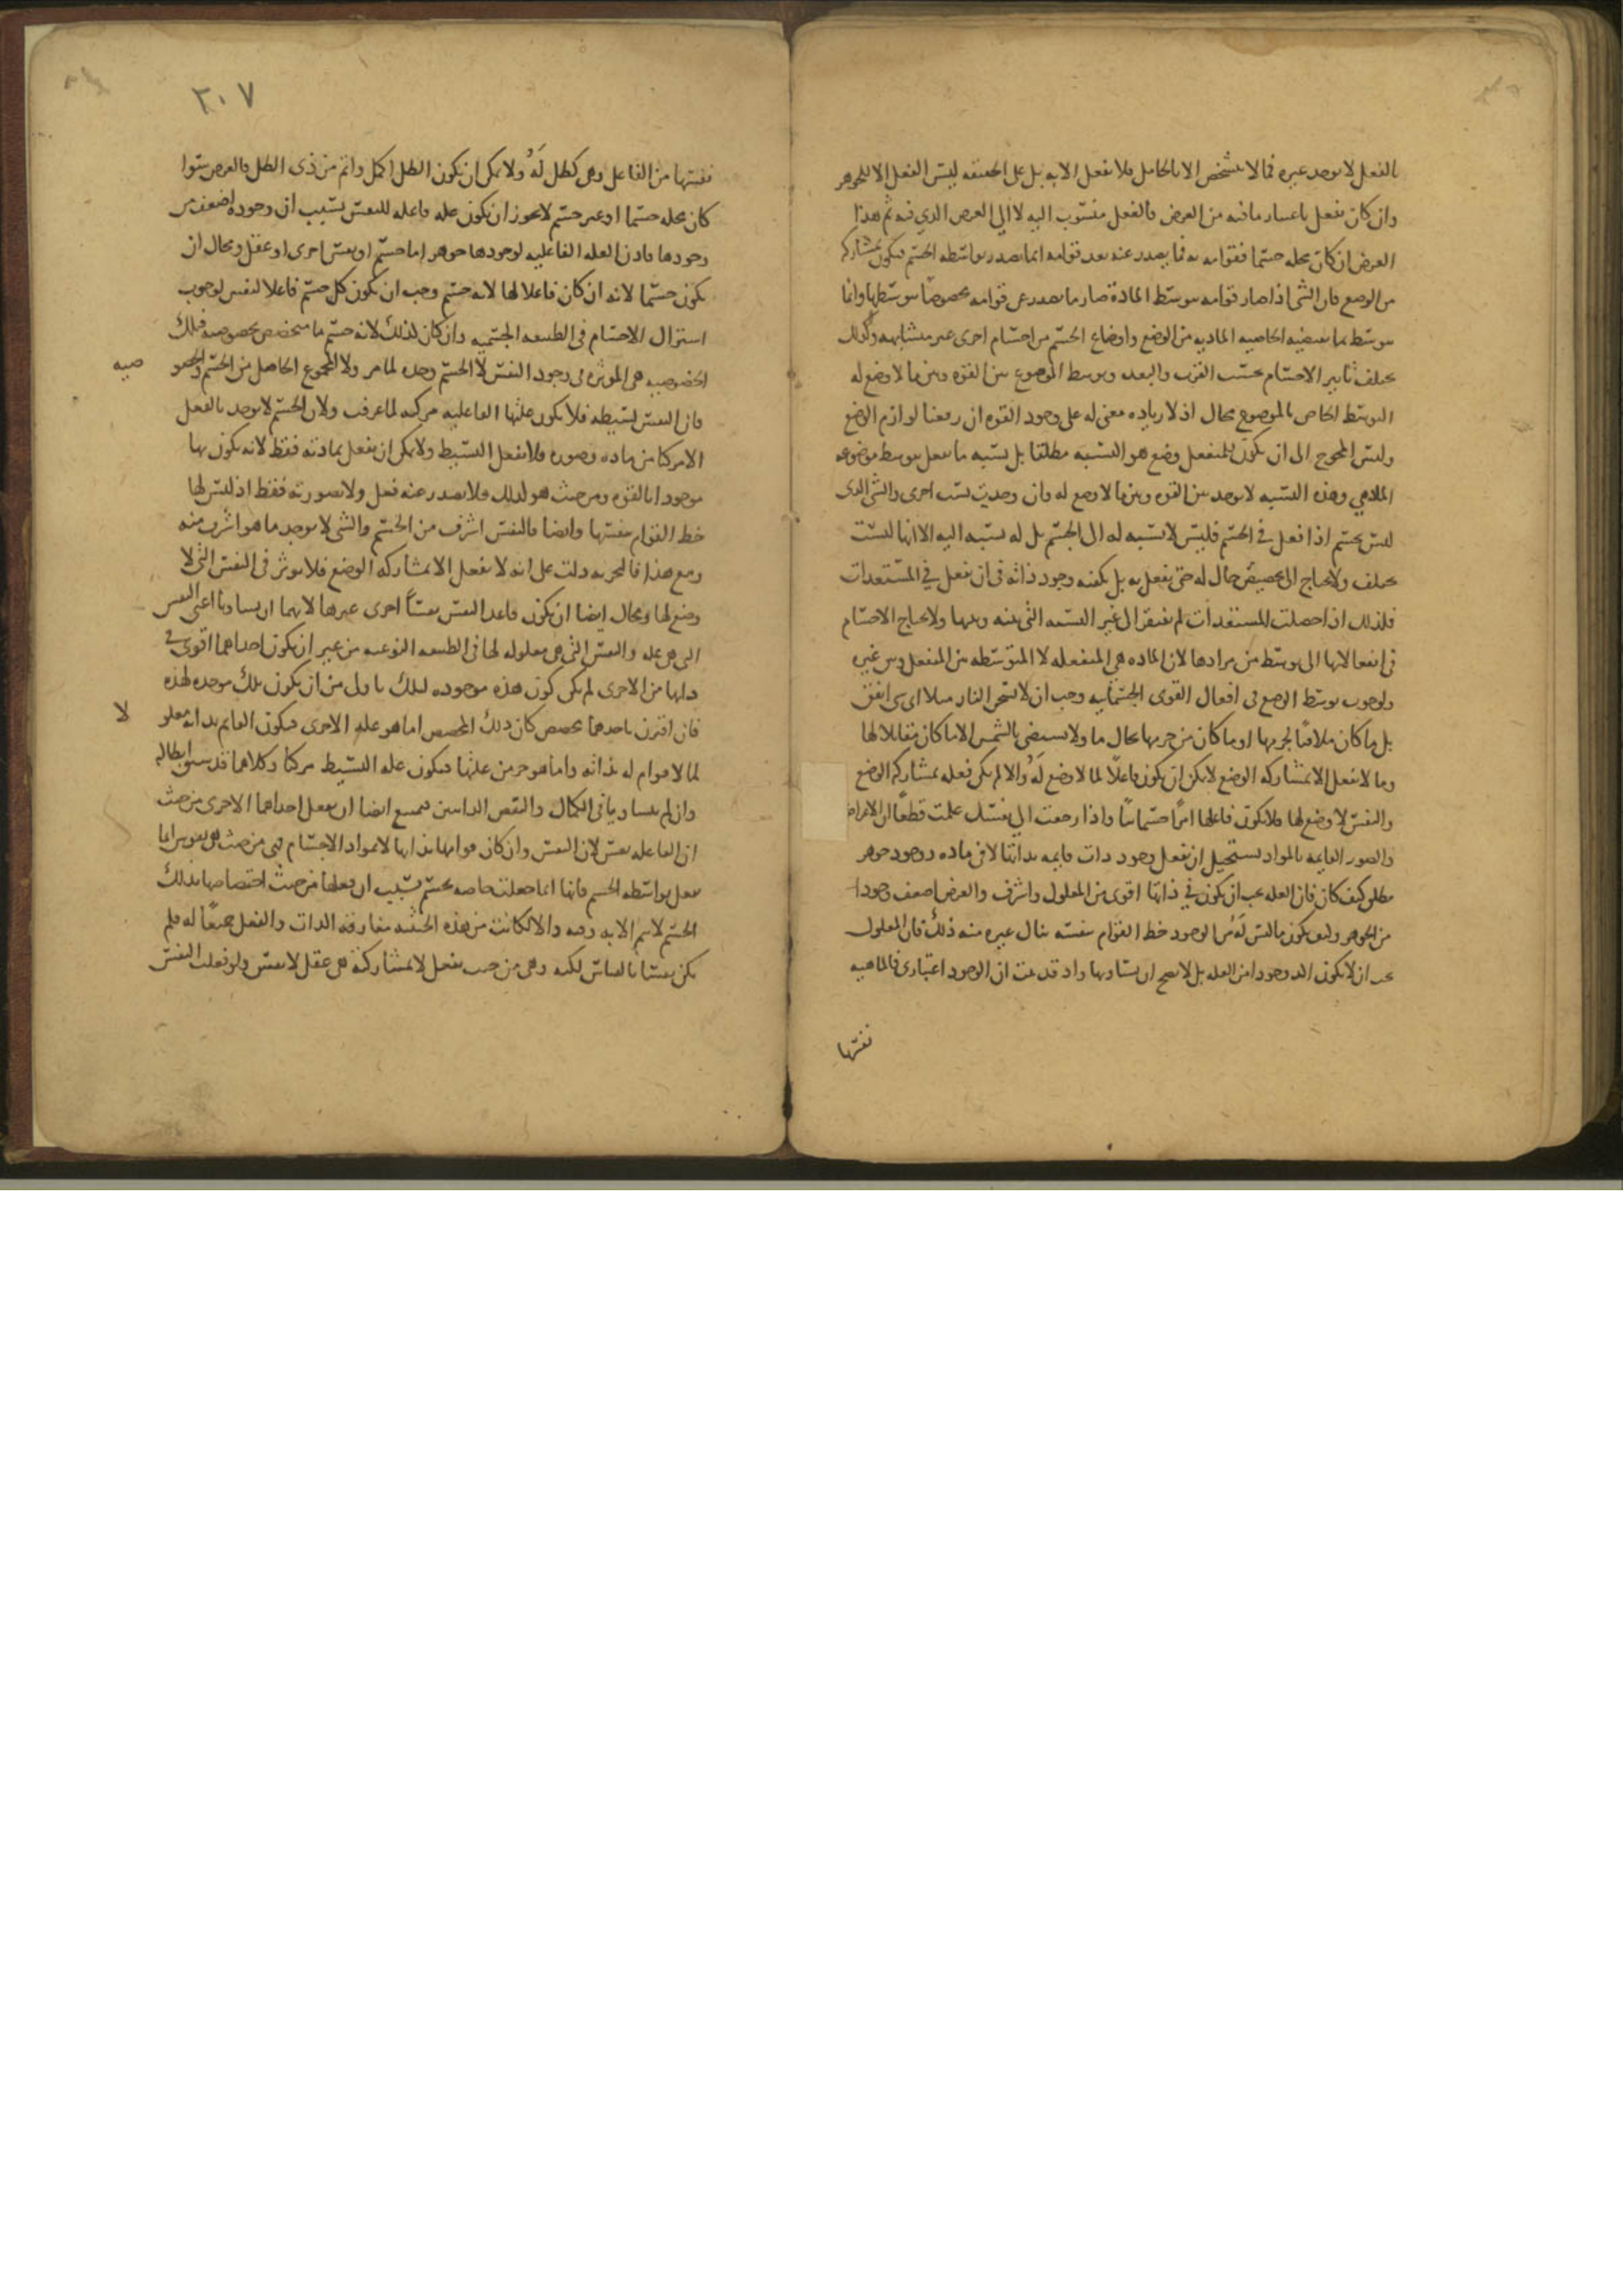 بالفعل لا يوجد غيره فما لا يتشخص الا بالحامل فلا يفعل الا به بل على الحقيقه ليس الفعل الا للجوهر
وان كان يفعل باعتبار ما فيه من العرض فالفعل منسوب اليه لا الى العرض الذي فيه ثم هذا
العرض ان كان محله جسما فقوامه به فما يصدر عنه بعد قوامه انما يصدر بواسطه الجسم فيكون بمشاركه
من الوضع فان الشى اذا صار قوامه بتوسط المادة صار ما يصدر عن قوامه مخصوصا بتوسطها وانما
يتوسط بما تقتضيه الخاصيه الماديه من الوضع واوضاع الجسم من اجسام اخرى غير متشابهه وكذلك
يختلف تاثير الاجسام بحسب القرب والبعد وتوسط الموضوع بين القوه وبين ما لا وضع له
التوسط الخاص بالموضوع محال اذ لا زياده معنى له على وجود القوه ان رفعنا لوازم الوضع
وليس المحوج الى ان يكون للمنفعل وضع هو النسبه مطلقا بل نسبه ما يفعل بتوسط موضوعه
الملاقي وهذه النسبه لا توجد بين القوه وبين ما لا وضع له وان وجدت نسب اخرى والشى الذى
ليس بجسم اذا فعل في الجسم فليس لا نسبه له الى الجسم بل له نسبه اليه الا انها ليست
تختلف ولا يحتاج الى تخصيص حال له حتى يفعل به بل يكفيه وجود ذاته في ان يفعل في المستعدات
فلذلك اذا حصلت المستعدات لم يفتقر الى غير النسبه التى بينه وبينها ولا يحتاج الاجسام
في انفعالاتها الى توسط من موادها لان الماده هي المنفعله لا المتوسطه بين المنفعل وبين غيره
ولوجوب توسط الوضع في افعال القوى الجسمانيه وجب ان لا تسخن النار مثلا اي شى اتفق
بل ما كان ملاقيا لجرمها او ما كان من جرمها بحال ما ولا يستضى بالشمس الا ما كان مقابلا لها
وما لا يفعل الا بمشاركه الوضع لا يمكن ان يكون فاعلا لما لا وضع له والا لم يكن فعله بمشاركه الوضع
والنفس لا وضع لها فلا يكون فاعلها امرا جسمانيا واذا رجعت الى نفسك علمت قطعا ان الاعراض
والصور القايمه بالمواد يستحيل ان تفعل وجود ذات قايمه بذاتها لا في ماده ووجود جوهر
مطلق كيف كان فان العله يجب ان يكون في ذاتها اقوى من المعلول واشرف والعرض اضعف وجودا
من الجوهر وكيف يكون ما ليس له من الوجود حظ القوام بنفسه ينال غيره منه ذلك فان المعلول
يجب ان لا يكون اكد وجودا من العله بل لا يصح ان يساويها واذ قد بينت ان الوجود اعتبارى فالماهيه
نفسها
٣٠٧
نفسها من الفاعل وهى كظل له ولا يمكن ان يكون الظل اكمل واتم من ذى الظل فالعرض سوا
كان محله جسما او غير جسم لا يجوز ان يكون عله فاعله للنفس بسبب ان وجوده اضعف من
وجودها فاذن العله الفاعليه لوجودها جوهر اما جسم او نفس اخرى او عقل ومحال ان
يكون جسما لانه ان كان فاعلا لها لانه جسم وجب ان يكون كل جسم فاعلا لنفس لوجوب
اشتراك الاجسام في الطبيعه الجسميه وان كان لذلك لانه جسم ما متخصص بخصوصيه فتلك
الخصوصيه هى الموثره فى وجود النفس لا الجسم وحده لما مر ولا المجموع الحاصل من الجسم والخصو
صيه
فان النفس بسيطه فلا يكون علتها الفاعليه مركبه لما عرفت ولان الجسم لا يوجد بالفعل
الا مركبا من ماده وصوره فلا يفعل البسيط ولا يمكن ان يفعل بمادته فقط لانه يكون بها
موجودا بالقوه ومن حيث هو كذلك فلا يصدر عنه فعل ولا بصورته فقط اذ ليس لها
حظ القوام بنفسها وايضا فالنفس اشرف من الجسم والشى لا يوجد ما هو اشرف منه
ومع هذا فالتجربه دلت على انه لا يفعل الا بمشاركه الوضع فلا يوثر في النفس التى لا
وضع لها ومحال ايضا ان يكون فاعل النفس نفسا اخرى غيرها لانهما ان تساويا اعنى النفس
التى هى عله والنفس التى هى معلوله لها في الطبيعه النوعيه من غير ان يكون احداهما اقوى في
ذاتها من الاخرى لم يكن كون هذه موجوده لتلك باولى من ان يكون تلك موجده لهذه
فان اقترن باحدهما مخصص كان ذلك المخصص اما هو عله الاخرى فيكون القايم بذاته معلو
لا
لما لا قوام له بذاته واما هو جزء من علتها فيكون عله البسيط مركبا وكلاهما قد سبق ابطاله
وان لم يتساويا في الكمال والنقص الذاتيين فيمتنع ايضا ان يفعل احداهما الاخرى من حيث
ان الفاعله نفس لان النفس وان كان قوامها بذاتها لا بمواد الاجسام فهى من حيث هى نفس انما
تفعل بواسطه الجسم فانها انما جعلت خاصه بجسم بسبب ان فعلها من حيث اختصاصها بذلك
الجسم لا يتم الا به وفيه والا لكانت من هذه الحيثيه مفارقه الذات والفعل جميعا له فلم
يكن نفسا بالقياس لكنه وهى من حيث تفعل لا بمشاركته هى عقل لا نفس ولو فعلت النفس